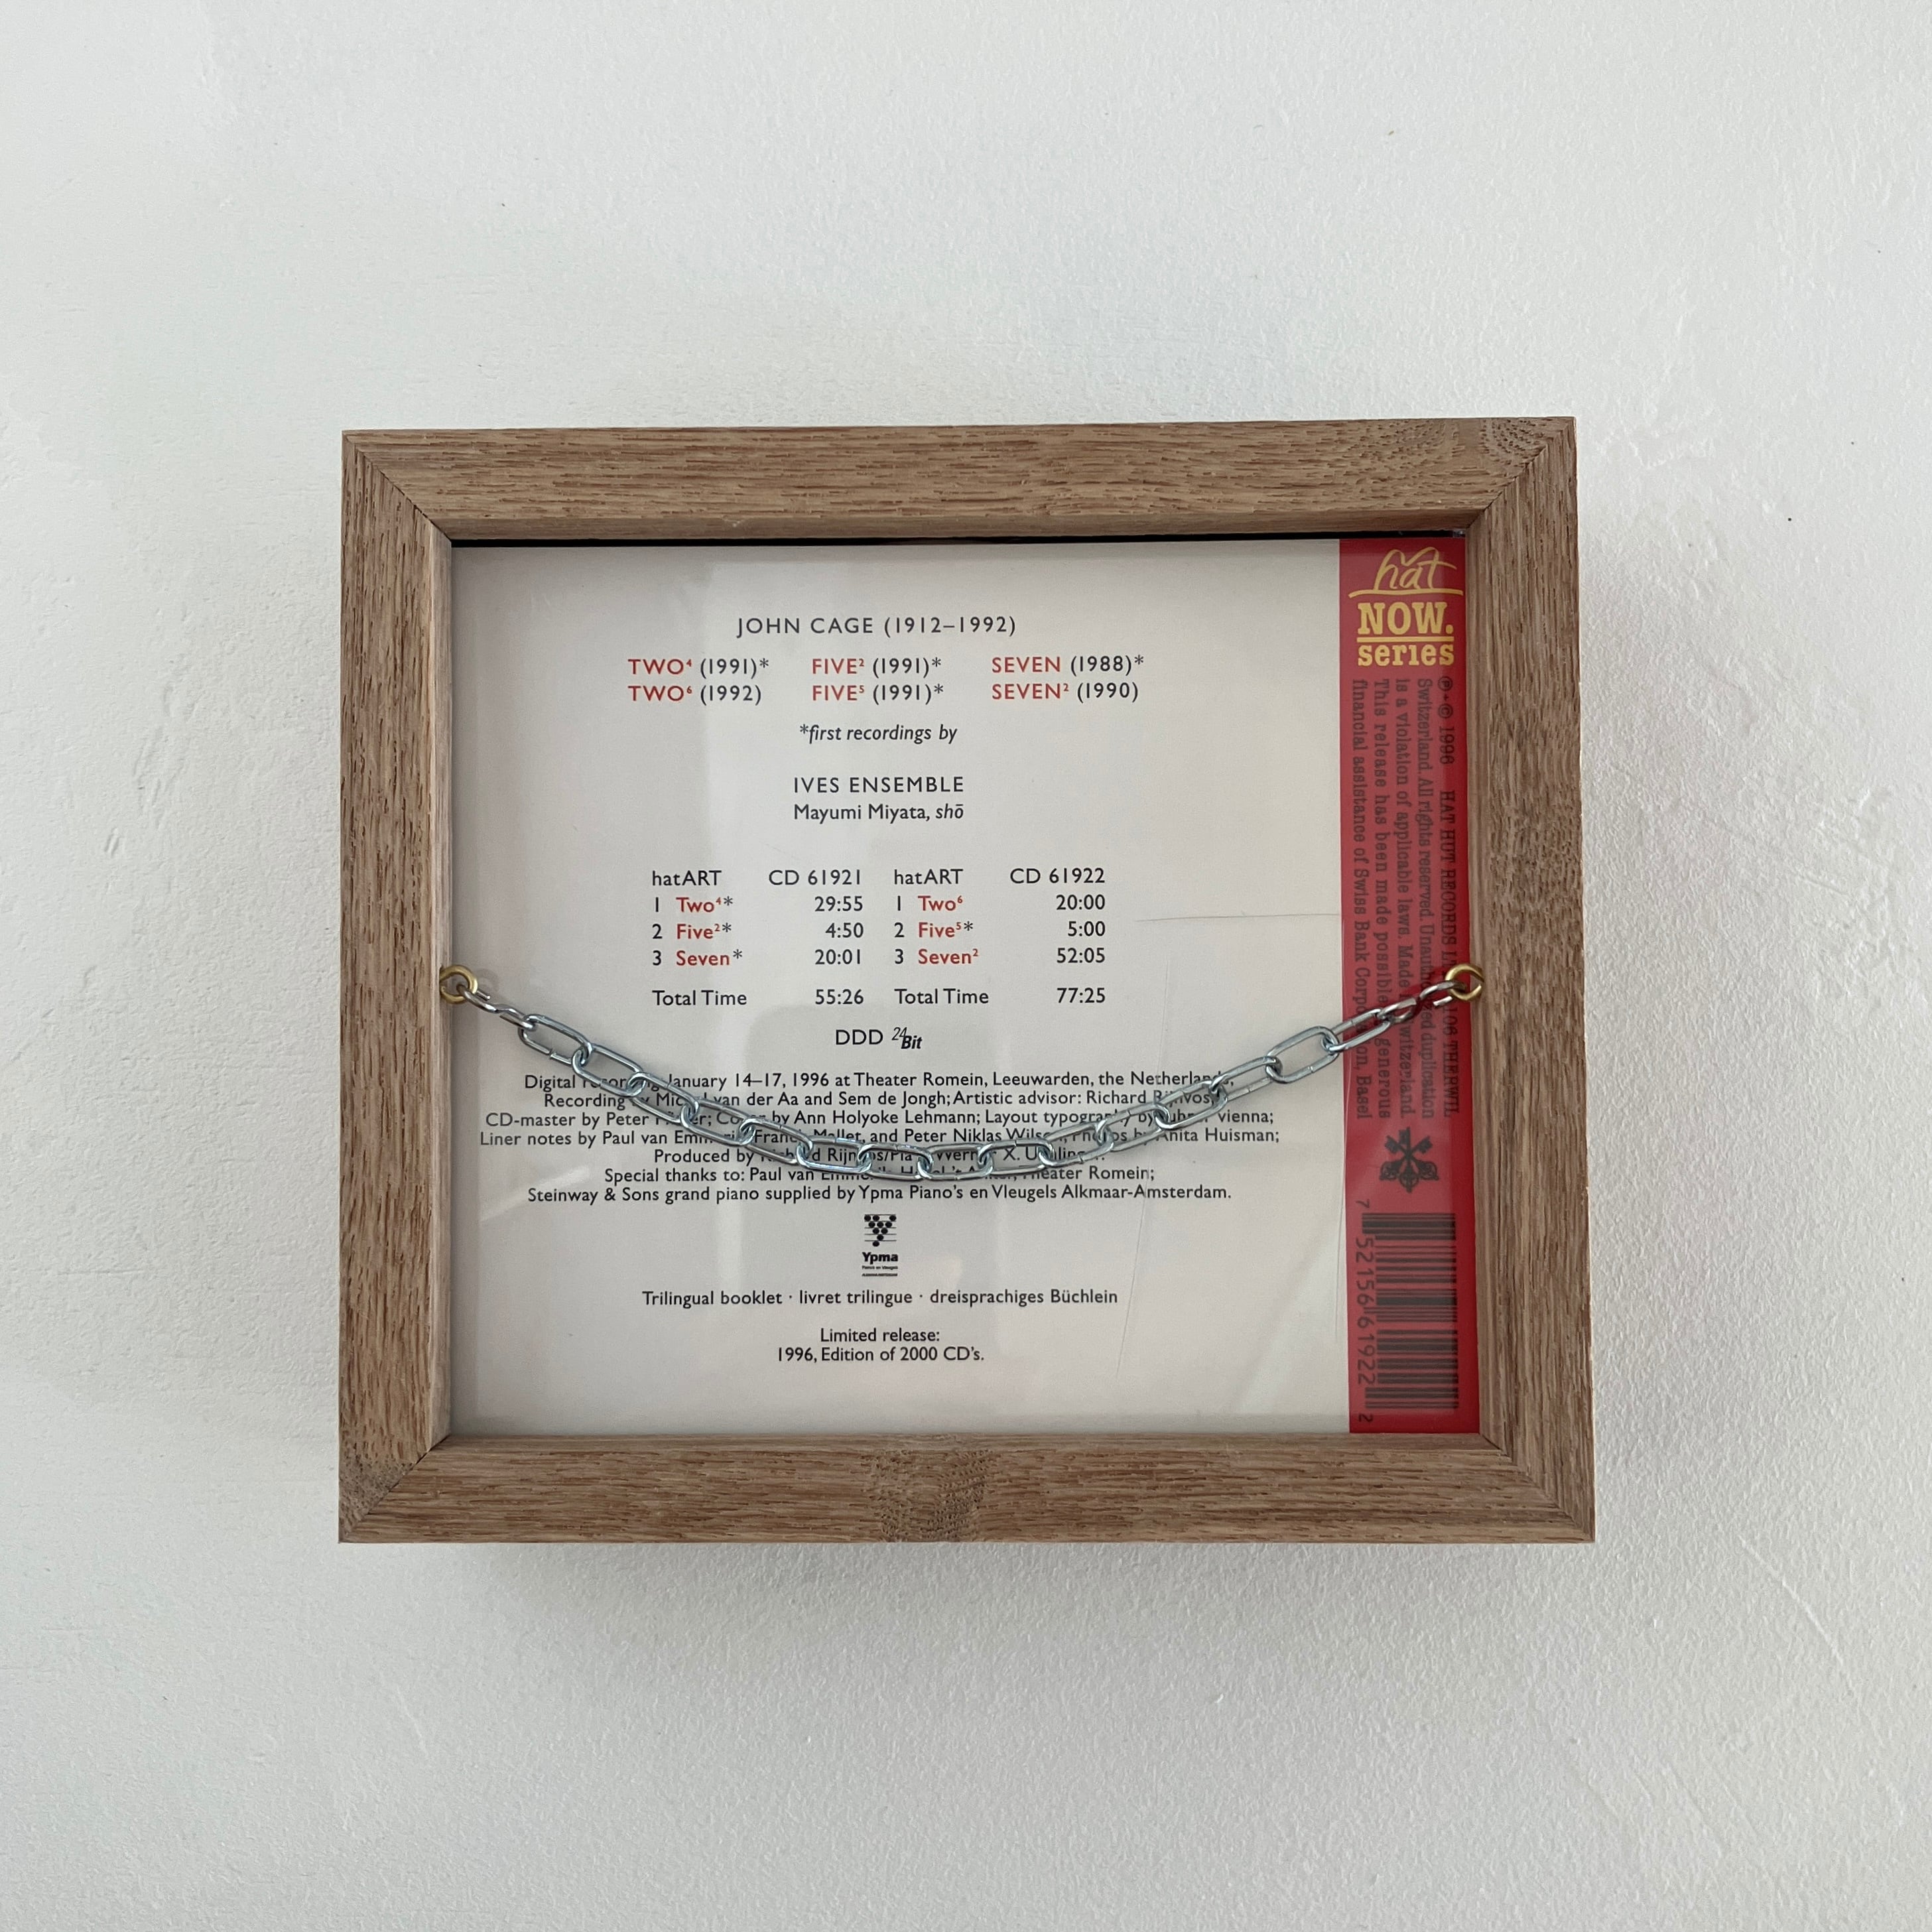 JOHN CAGE (1912–1992)
TWO⁴ (1991)* FIVE² (1991)* SEVEN (1988)*
TWO⁶ (1992) FIVE⁵ (1991)* SEVEN² (1990)
*first recordings by
IVES ENSEMBLE
Mayumi Miyata, shō
hatART CD 61921 hatART CD 61922
1 Two⁴* 29:55 1 Two⁶ 20:00
2 Five²* 4:50 2 Five⁵* 5:00
3 Seven* 20:01 3 Seven² 52:05
Total Time 55:26 Total Time 77:25
DDD 24Bit
Digital January 14–17, 1996 at Theater Romein, Leeuwarden, the Netherlands;
Recording by van der Aa and Sem de Jongh; Artistic advisor: Richard Rijnvos;
CD-master by Peter by Ann Holyoke Lehmann; Layout typography by Vienna;
Liner notes by Paul van Mallet, and Peter Niklas Photos by Anita Huisman;
Produced by Werner X.
Special thanks to: Paul van Theater Romein;
Steinway & Sons grand piano supplied by Ypma Piano's en Vleugels Alkmaar-Amsterdam.
Ypma
Trilingual booklet · livret trilingue · dreisprachiges Büchlein
Limited release:
1996, Edition of 2000 CD's.
hat
NOW.
series
℗ + © 1996 HAT HUT RECORDS THERWIL
Switzerland. All rights reserved. duplication
is a violation of applicable laws. Made Switzerland.
This release has been made possible generous
financial assistance of Swiss Bank Basel
7 52156 61922 2